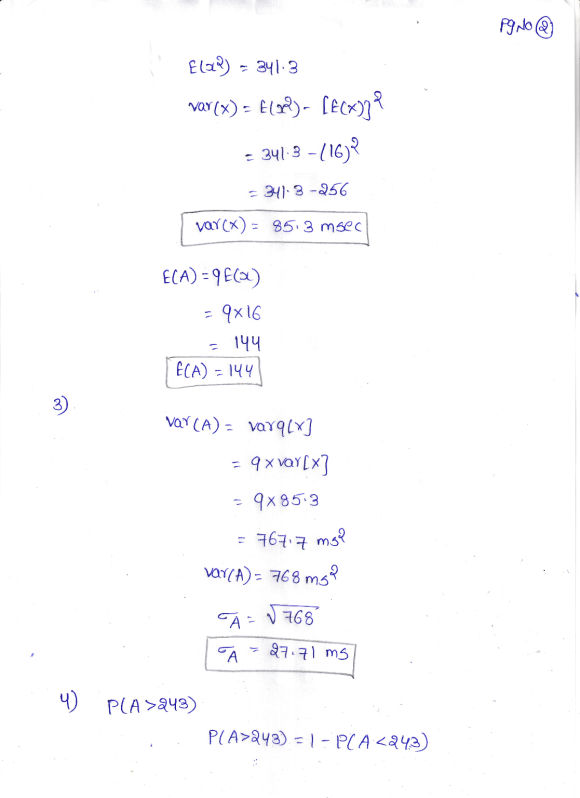 Pg No 2
E(x²) = 341.3
var(x) = E(x²) - [E(x)]²
= 341.3 - (16)²
= 341.3 - 256
var(x) = 85.3 msec
E(A) = 9E(x)
= 9x16
= 144
E(A) = 144
3)
var(A) = var9[x]
= 9 x var[x]
= 9x85.3
= 767.7 ms²
var(A) = 768 ms²
σA = √768
σA = 27.71 ms
4) P(A>243)
P(A>243) = 1 - P(A<243)